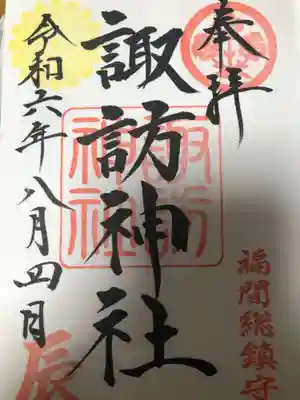 奉拝
福間総鎮守
諏訪神社
諏訪神社
令和六年八月四日
辰